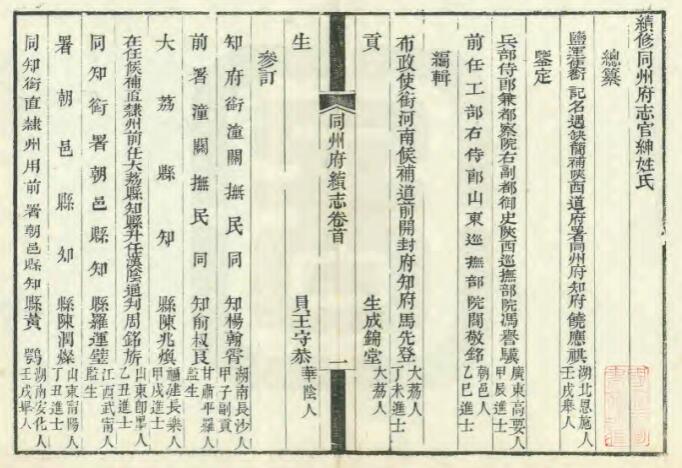 續修同州府志官紳姓氏
總纂
鹽運使銜記名遇缺簡補陝西道府署同州府知府饒應祺湖北恩施人壬戌舉人
鑒定
兵部侍郎兼都察院右副都御史陝西巡撫部院馮譽驥廣東高要人甲辰進士
前任工部右侍郎山東巡撫部院閻敬銘朝邑人乙巳進士
編輯
布政使銜河南候補道前開封府知府馬先登大荔人丁未進士
貢生成錦堂大荔人
同州府續志卷首
一
生員王守恭華陰人
參訂
知府銜潼關撫民同知楊翰霄湖南長沙人甲子副貢
前署潼關撫民同知俞叔良甘肅平羅人監生
大荔縣知縣陳兆煥福建長樂人甲戌進士
在任候補直隸州前任大荔縣知縣升任漢陰通判周銘旂山東卽墨人乙丑進士
同知銜署朝邑縣知縣羅運瑩江西武甯人監生
署朝邑縣知縣陳潤燦山東甯陽人丁丑進士
同知銜直隸州用前署朝邑縣知縣黃鶚湖南安化人壬戌舉人